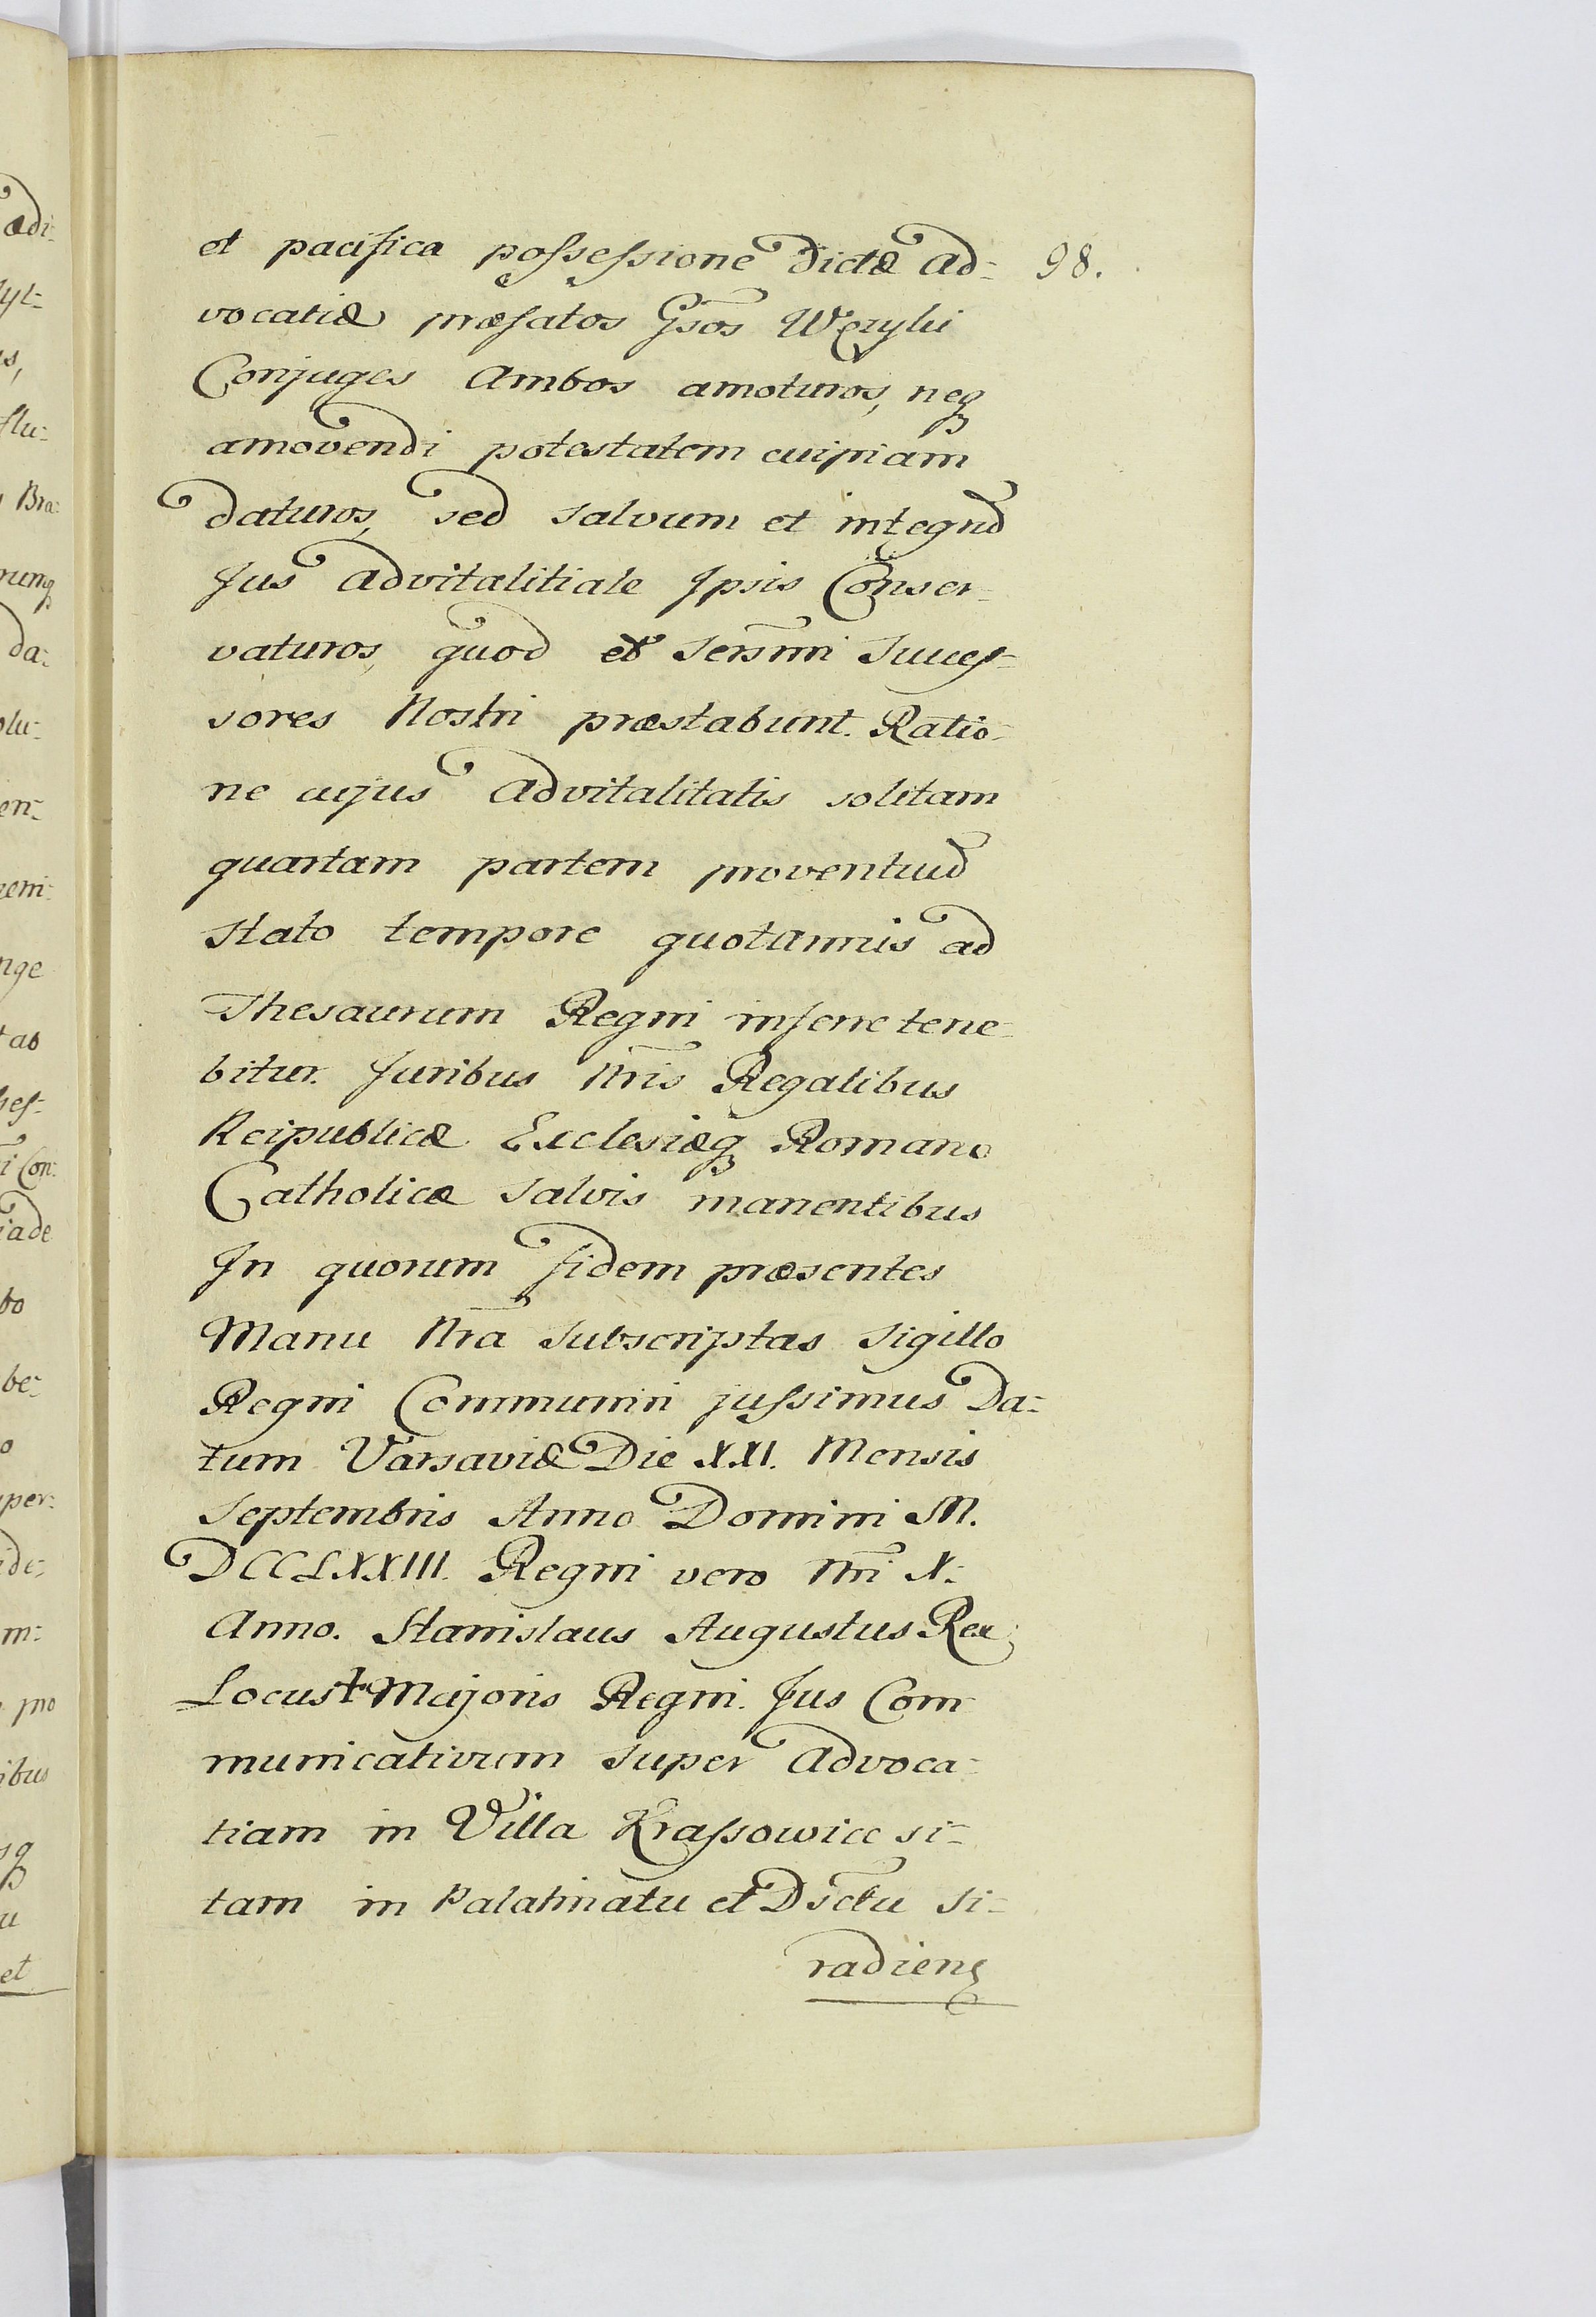 et pacifica possessione dictæ Ad= 98.
vocatiæ præfatos Gsos Weryhi
Conjuges Ambos amoturos, neq
amovendi potestatem cuipiam
daturos, sed salvum et integrũ
Jus advitalitiale Ipsis Conser=
vaturos, quod et Sersmi Succes=
sores Nostri præstabunt. Ratio=
ne cujus Advitalitatis solitam
quartam partem proventuũ
stato tempore quotannis ad
Thesaurum Regni inferre tene=
bitur. Juribus Nris Regalibus
Reipublicæ Ecclesiæq Romano
Catholicæ salvis manentibus
In quorum fidem præsentes
Manu Nra subscriptas Sigillo
Regni Communiri jussimus Da=
tum Varsaviæ Die XXI. Mensis
Septembris Anno Domini M.
DCCLXXIII. Regni vero Nri X.
Anno. Stanislaus Augustus Rex
Locus Majoris Regni. Jus Com
municativum super Advoca=
tiam in Villa Krassowice si=
tam in Palatinatu et Dsctu Si=
radien
adi=
lyt=
flu=
Bra=
da=
olu=
en=
nge
ab
i Con=
iade
bo
be=
o
per=
ide=
m=
pro
ibus
u
et